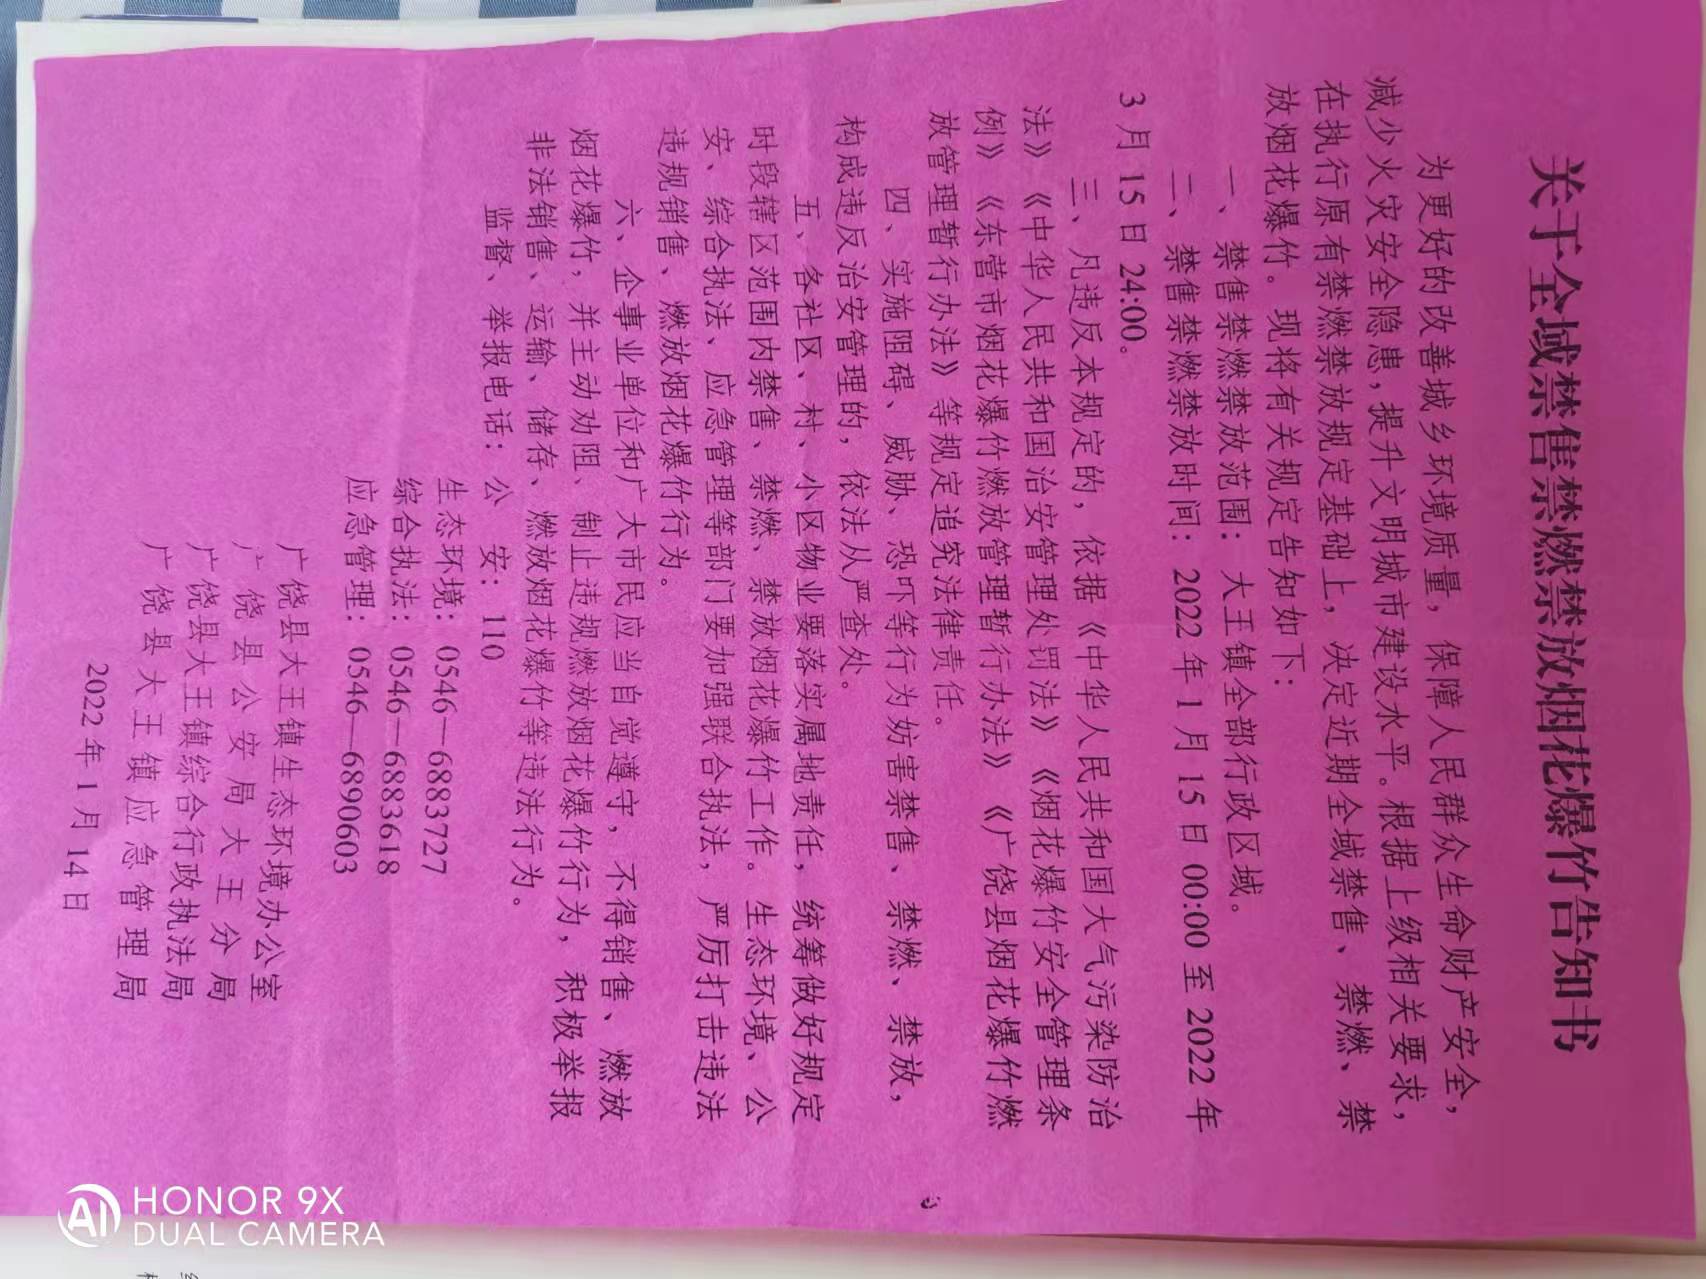 关于全域禁售禁燃禁放烟花爆竹告知书
为更好的改善城乡环境质量，保障人民群众生命财产安全，
减少火灾安全隐患，提升文明城市建设水平。根据上级相关要求，
在执行原有禁燃禁放规定基础上，决定近期全域禁售、禁燃、禁
放烟花爆竹。现将有关规定告知如下：
一、禁售禁燃禁放范围：大王镇全部行政区域。
二、禁售禁燃禁放时间：2022年1月15日00:00至2022年
3月15日24:00。
三、凡违反本规定的，依据《中华人民共和国大气污染防治
法》《中华人民共和国治安管理处罚法》《烟花爆竹安全管理条
例》《东营市烟花爆竹燃放管理暂行办法》《广饶县烟花爆竹燃
放管理暂行办法》等规定追究法律责任。
四、实施阻碍、威胁、恐吓等行为妨害禁售、禁燃、禁放，
构成违反治安管理的，依法从严查处。
五、各社区、村、小区物业要落实属地责任，统筹做好规定
时段辖区范围内禁售、禁燃、禁放烟花爆竹工作。生态环境、公
安、综合执法、应急管理等部门要加强联合执法，严厉打击违法
违规销售、燃放烟花爆竹行为。
六、企事业单位和广大市民应当自觉遵守，不得销售、燃放
烟花爆竹，并主动劝阻、制止违规燃放烟花爆竹行为，积极举报
非法销售、运输、储存、燃放烟花爆竹等违法行为。
监督、举报电话：公 安：110
生态环境：0546—6883727
综合执法：0546—6883618
应急管理：0546—6890603
广饶县大王镇生态环境办公室
广饶县公安局大王分局
广饶县大王镇综合行政执法局
广饶县大王镇应急管理局
2022年1月14日
HONOR 9X
DUAL CAMERA